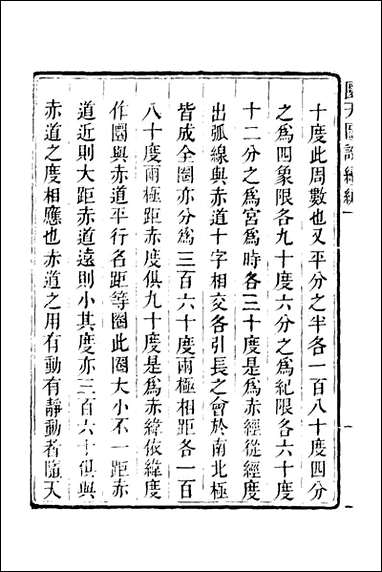 十度此周數也又平分之半各一百八十度四分
之爲四象限各九十度六分之爲紀限各六十度
十二分之爲宮爲時各三十度是爲赤經從經度
出弧線與赤道十字相交各引長之會於南北極
皆成全圈亦分爲三百六十度兩極相距各一百
八十度兩極距赤度俱九十度是爲赤緯依緯度
作圈與赤道平行名距等圈此圈大小不一距赤
道近則大距赤道遠則小其度亦三百六十俱與
赤道之度相應也赤道之用有動有靜動者隨天